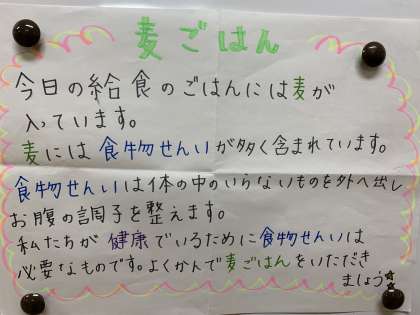 麦ごはん
今日の給食のごはんには麦が
入っています。
麦には食物せんいが多く含まれています。
食物せんいは体の中のいらないものを外へ出し
お腹の調子を整えます。
私たちが健康でいるために食物せんいは
必要なものです。よくかんで麦ごはんをいただき
ましょう☆